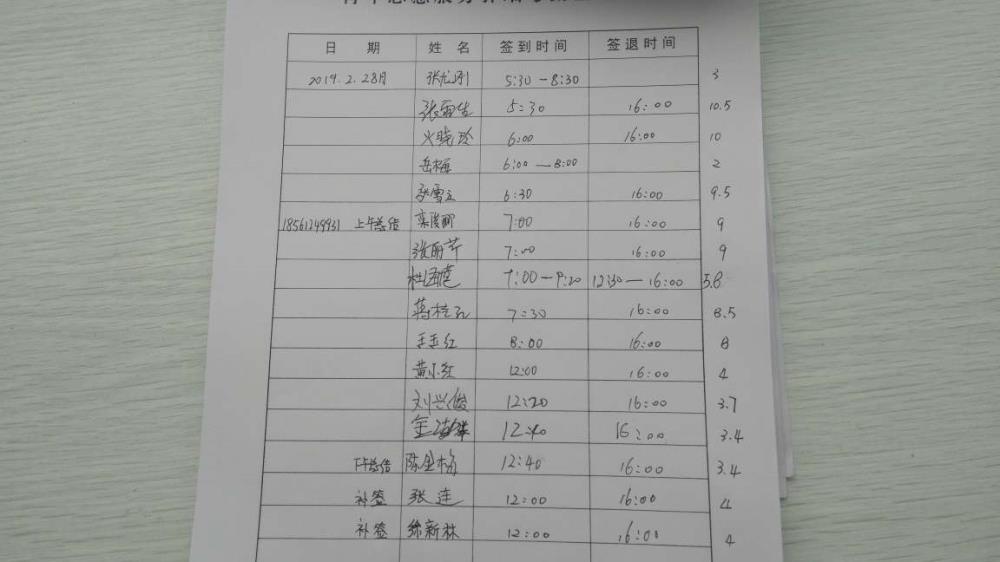 日 期 姓 名 签到时间 签退时间
2019.2.28月 5:30-8:30 3
张雪佳 5:30 16:00 10.5
火晓玲 6:00 16:00 10
岳梅 6:00—8:00 2
张雪立 6:30 16:00 9.5
18561249931 上午总结 栾俊丽 7:00 16:00 9
张丽芹 7:00 16:00 9
7:00-9:20 12:30—16:00 5.8
蒋桂孔 7:30 16:00 8.5
王玉红 8:00 16:00 8
黄小红 12:00 16:00 4
刘兴俊 12:20 16:00 3.7
12:40 16:00 3.4
下午总结 陈金梅 12:40 16:00 3.4
补签 张连 12:00 16:00 4
补签 徐新林 12:00 16:00 4